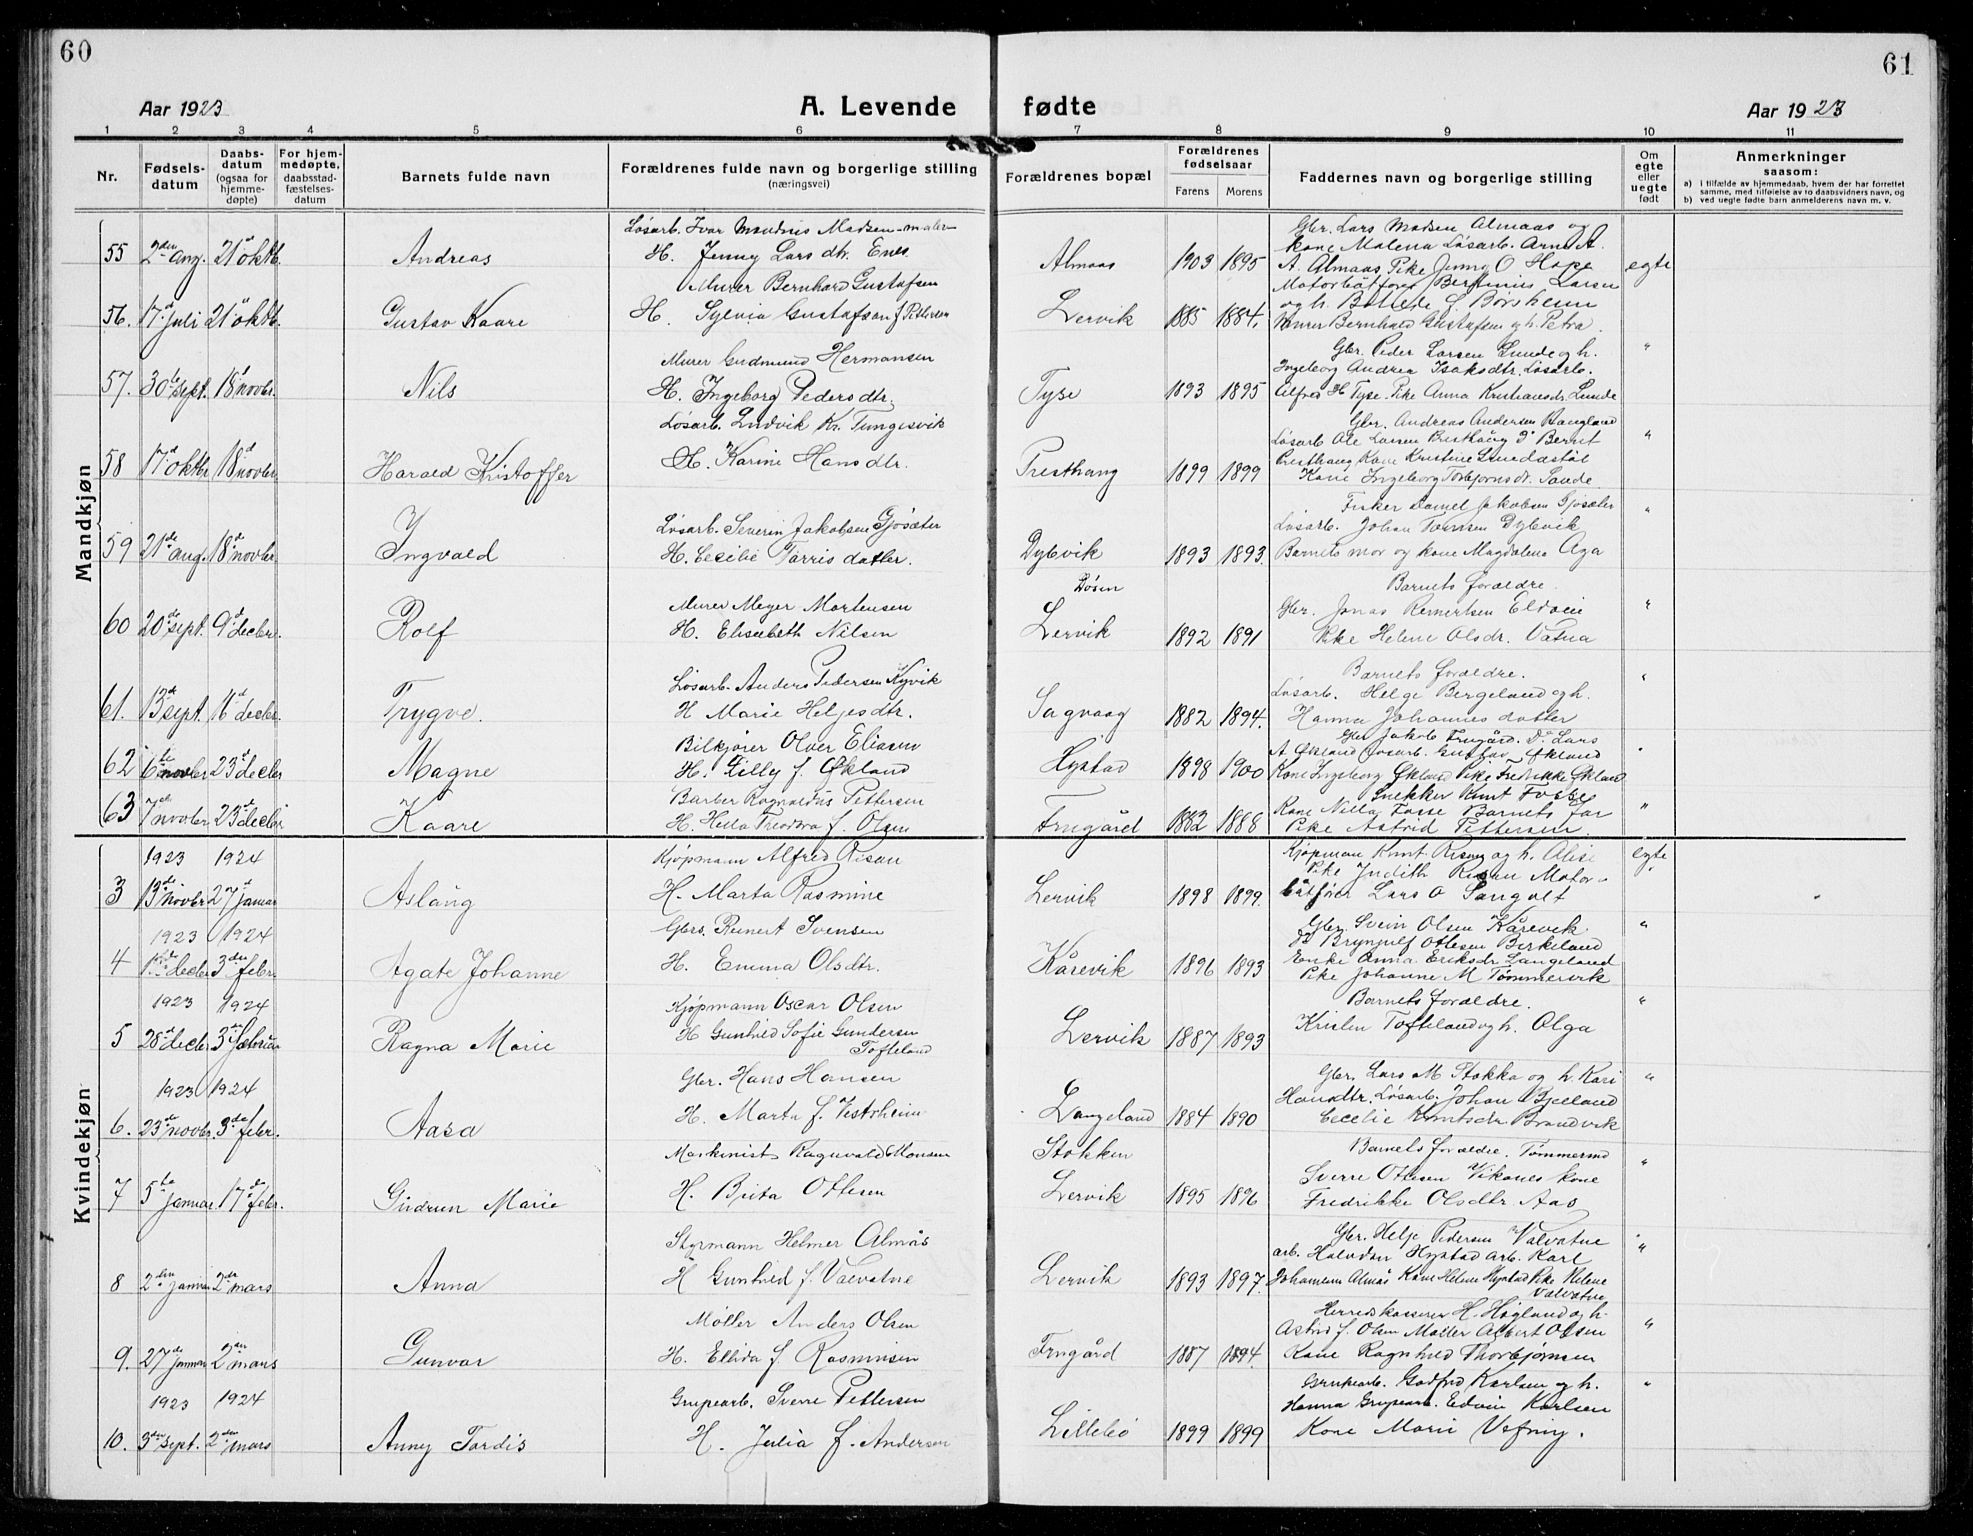 60
61
Aar 1923
A. Levende fødte
Aar 1923
1 2 3 4 5 6 7 8 9 10 11
Nr.
Fødsels-
datum
Daabs-
datum
(ogsaa for
hjemme-
døpte)
For hjem-
medøpte,
daabsstad-
fæstelses-
datum
Barnets fulde navn
Forældrenes fulde navn og borgerlige stilling
(næringsvei)
Forældrenes bopæl
Forældrenes
fødselsaar
Farens Morens
Faddernes navn og borgerlige stilling
Om
egte
eller
uegte
født
Anmerkninger
saasom:
a) i tilfælde av hjemmedaab, hvem der har forrettet
samme, med tilføielse av to daabsvidners navn, og
b) ved uegte fødte barn anmelderens navn m. v.
Mandkjøn
Løsarb. Ivar Madsen - maler
Gbr. Lars Madsen Almaas og
55 2den aug. 21de oktb. Andreas H. Jenny Lars dtr. Enes Almaas 1903 1895 kone Malena Løsarb. Arne A. egte
A. Almaas Pike Jenny O Hope
Murer Bernhard Gustafsen
Larsen
56. 17d juli 21de oktb. Gustav Kaare H. Sylvia Gustafsen f Pettersen Lervik 1885 1884. og h. f Børsheim
Murer Bernhard Gustafsen og h. Petra. "
Murer Gudmund Hermansen
Gbr. Peder Larsen Lunde og h.
Ingeborg Andrea Isaksdtr. Løsarb.
57. 30te sept. 18d novbr. Nils H. Ingeborg Pedersdtr. Tyse 1893 1895 Alfred H Tyse. Pike Anna Kristiansdr. Lunde
Løsarb. Ludvik Kr. Tungesvik
Gbr. Andreas Andersen Haugland
Løsarb Ole Larsen "
58 17d oktbr 18d novbr Harald Kristoffer H. Karine Hansdtr. Presthaug 1899 1899 Presthaug Kone Kristine
Kone Ingeborg Torbjørnsdr. Sande
Fisker Daniel Jakobsen Gjøsæter "
Løsarb. Severin Jakobsen Gjøsæter
Løsarb. Johan Dybvik
59 21de aug. 18de novbr. Y Ingvald H. Cecilie Torris datter. Dybvik 1893 1893. Barnets mor og kone Magdalena Aga
Døsen
Barnets forældre.
Murer Meyer Mortensen
Gbr. Jonas Reinertsen "
60 20de sept. 9d decbr. Rolf H. Elisebeth Nilsen Lervik 1892 1891 Pike Helene Olsdr. Vatna
Løsarb. Anders Pedersen Kyvik
Barnets forældre. "
Løsarb. Helge Bergeland og h.
61. 13de sept. 16d decbr. Trygve. H Marie Heljesdtr. Sagvaag 1882 1894. Hanna Johannes datter
Bilkjører Olver Eliasen
Gbr Jakob Frugård. Do Lars
A Økland Løsarb. Gustav Økland "
62 6te novbr 23d decbr Magne H. Gilly f. Økland Hystad 1898 1900 Kone Ingeborg Økland Pike Fredrikke Økland
Barber Ragnaldus Pettersen
Snekker Knut Fosse
63 7de novbr 23d decbr Kaare H. Hilda Theodora f. Olsen Frugård 1882 1888 Kone Nilla Fosse Barnets far "
Pike Astrid Pettersen.
Kvindekjøn
1923 1924
Kjøpmann Alfred Risan
Kjøpman Knut Risan og h. Alise egte
Pike Judith Risan Motor-
3 13de novbr 27d januar Aslaug H. Marta Rasmine Lervik 1898 1899. båtfører Lars O Sangolt
1923 1924
Gbrs. Reinert Svensen
Gbr. Svein Olsen Kårevik "
Do Brynjulf Ottesen Birkeland
4 1ste decbr 3die febr. Agate Johanne H. Emma Olsdtr. Kårevik 1896 1893 Enke Anna Eriksdr Langeland
Pike Johanne M Tømmervik
1923 1924
Kjøpmann Oscar Olsen
Barnets forældre. "
5 28de decbr 3die februar Ragna Marie H Gunhild Sofie Gundersen Tofteland Lervik 1887 1893 Kristen Tofteland og h. Olga
1923 1924
Gbr. Hans Hansen
Gbr. Lars M Stokka og h. Kari "
Hansdtr. Løsarb. Johan Bjelland
6. 23de novbr. 3die febr. Aasa H. Marta f. Vestrheim Langeland 1884 1890 Cecelie Knutsdr Brandvik
Maskinist Ragnvald Monsen
Stokken
Barnets forældre. Tømmermd "
Sverre Ottesen Vikanes kone
7 5te januar 17de febr. Gudrun Marie H. Brita Ottesen Lervik 1895 1896 Fredrikke Olsdtr Aas
Styrmann Helmer Almås
Gbr. Helje Pedersen Valvatne "
arb. Halvdan Hystad arb. Karl
8 2den januar 2den mars Anna H Gunhild f. Valvatne Lervik 1893 1897. Johannesen Almås Kone Helene Hystad Pike Helene
Valvatne
Møller Anders Olsen
Herredskasserer H. Høgland og h.
Astrid f. Olsen Møller Albert Olsen "
9. 27de januar 2den mars Gunvor H. Ellida f. Rasmusen Frugård 1887 1894 Kone Ragnhild Thorbjørnsen
1923 1924
Grupearb. Sverre Pettersen
Grupearb. Godfred Karlsen og h. "
Hanna Grupearb. Edvin Karlsen
10. 3die sept. 2den mars Anny Tordis H. Julia f. Andersen Lillebø 1899 1899 Kone Marie